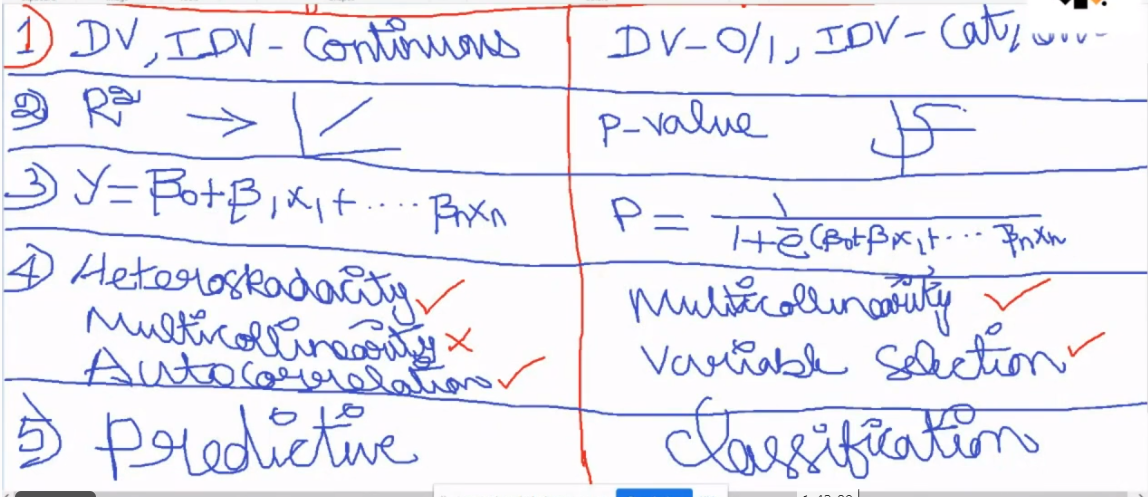 1) DV, IDV - Continuous
DV - 0/1, IDV - Cat,
2) R² →
P-value
3) Y = β0 + β1x1 + .... βnxn
P = 1 / 1 + e^-(β0 + β1x1 + ... βnxn
4) Heteroskadacity ✓
Multicollinearity ×
Autocorrelation ✓
Multicollinearity ✓
Variable Selection ✓
5) Predictive
Classification